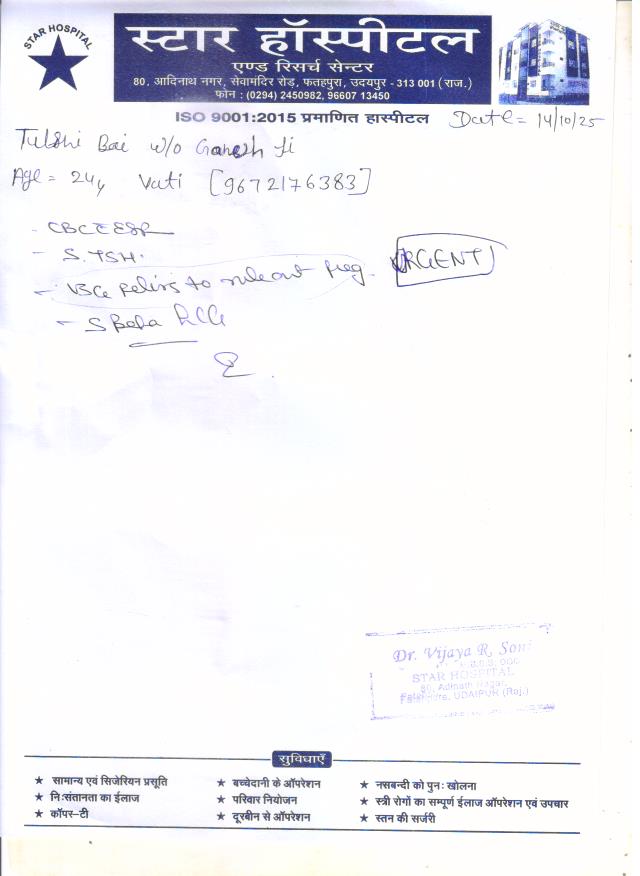 STAR HOSPITAL
स्टार हॉस्पीटल
एण्ड रिसर्च सेन्टर
80, आदिनाथ नगर, सेवामंदिर रोड़, फतहपुरा, उदयपुर - 313 001 (राज.)
फोन : (0294) 2450982, 96607 13450
ISO 9001:2015 प्रमाणित हास्पीटल
Date = 14/10/25
Tulshi Bai w/o Ganesh Ji
Age = 24y Vati [9672176383]
- CBC c̄ ESR
- S. TSH.
- USG pelvis to rule out preg. URGENT
- S Beta hCG
Dr. Vijaya R. Soni
STAR HOSPITAL
80, Adinath Nagar,
Fatehpura, UDAIPUR (Raj.)
सुविधाएँ
★ सामान्य एवं सिजेरियन प्रसूति ★ बच्चेदानी के ऑपरेशन ★ नसबन्दी को पुनः खोलना
★ निःसंतानता का ईलाज ★ परिवार नियोजन ★ स्त्री रोगों का सम्पूर्ण ईलाज ऑपरेशन एवं उपचार
★ कॉपर-टी ★ दूरबीन से ऑपरेशन ★ स्तन की सर्जरी